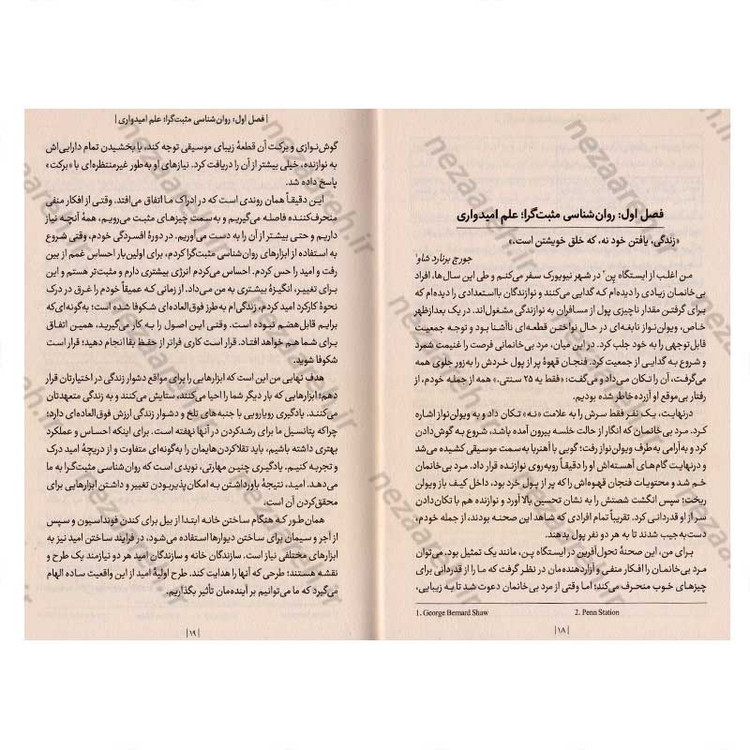 فصل اول: روان‌شناسی مثبت‌گرا؛ علم امیدواری
«زندگی، یافتن خود نه، که خلق خویشتن است.»
جورج برنارد شاو¹
من اغلب از ایستگاه پن² در شهر نیویورک سفر می‌کنم و طی این سال‌ها، افراد
بی‌خانمان زیادی را دیده‌ام که گدایی می‌کنند و نوازندگان بااستعدادی را دیده‌ام که
برای گرفتن مقدار ناچیزی پول از مسافران به نوازندگی مشغول‌اند. در یک بعدازظهر
خاص، ویولن‌نواز نابغه‌ای در حال نواختن قطعه‌ای ناآشنا بود و توجه جمعیت
قابل‌توجهی را به خود جلب کرد. در این میان، مرد بی‌خانمانی فرصت را غنیمت شمرد
و شروع به گدایی از جمعیت کرد. فنجان قهوهٔ پر از پول خردش را به‌زور جلوی همه
می‌گرفت، آن را تکان می‌داد و می‌گفت: «فقط یه ۲۵ سنتی.» همه از جمله خودم، از
رفتار بی‌موقع او آزرده خاطر شده بودیم.
درنهایت، یک نفر فقط سرش را به علامت «نه» تکان داد و به ویولن‌نواز اشاره
کرد. مرد بی‌خانمان که انگار از حالت خلسه بیرون آمده باشد، شروع به گوش‌دادن
کرد و به‌آرامی به‌طرف ویولن‌نواز رفت؛ گویی با آهنربا به‌سمت موسیقی کشیده می‌شد
و درنهایت گام‌های آهسته‌اش او را دقیقاً روبه‌روی نوازنده قرار داد. مرد بی‌خانمان
خم شد و محتویات فنجان قهوه‌اش را که پر از پول خرد بود، داخل کیف باز ویولن
ریخت؛ سپس انگشت شصتش را به نشان تحسین بالا آورد و نوازنده هم با تکان‌دادن
سر از او قدردانی کرد. تقریباً تمام افرادی که شاهد این صحنه بودند، از جمله خودم،
دست‌به‌جیب شدند تا به هر دو نفر پول بدهند.
برای من، این صحنهٔ تحول‌آفرین در ایستگاه پن، مانند یک تمثیل بود. می‌توان
مرد بی‌خانمان را افکار منفی و آزاردهنده‌مان در نظر گرفت که ما را از قدردانی برای
چیزهای خوب منحرف می‌کند؛ اما وقتی از مرد بی‌خانمان دعوت شد تا به زیبایی،
1. George Bernard Shaw
2. Penn Station
|۱۸|
| فصل اول: روان‌شناسی مثبت‌گرا؛ علم امیدواری |
گوش‌نوازی و برکت آن قطعهٔ زیبای موسیقی توجه کند، با بخشیدن تمام دارایی‌اش
به نوازنده، خیلی بیشتر از آن را دریافت کرد. نیازهای او به‌طور غیرمنتظره‌ای با «برکت»
پاسخ داده شد.
این دقیقاً همان روندی است که در ادراک ما اتفاق می‌افتد. وقتی از افکار منفی
منحرف‌کننده فاصله می‌گیریم و به‌سمت چیزهای مثبت می‌رویم، همهٔ آنچه نیاز
داریم و حتی بیشتر از آن را به دست می‌آوریم. در دورهٔ افسردگی خودم، وقتی شروع
به استفاده از ابزارهای روان‌شناسی مثبت‌گرا کردم، برای اولین‌بار احساس غمم از بین
رفت و امید را حس کردم. احساس می‌کردم انرژی بیشتری دارم و مثبت‌تر هستم و این
برای تغییر، انگیزهٔ بیشتری به من می‌داد. از زمانی که عمیقاً خودم را غرق در درک
نحوهٔ کارکرد امید کردم، زندگی‌ام به‌طرز فوق‌العاده‌ای شکوفا شده است؛ به‌گونه‌ای‌که
برایم قابل‌هضم نبوده است. وقتی این اصول را به کار می‌گیرید، همین اتفاق
برای شما هم خواهد افتاد. قرار است کاری فراتر از حفظ بقا انجام دهید؛ قرار است
شکوفا شوید.
هدف نهایی من این است که ابزارهایی را برای مواقع دشوار زندگی در اختیارتان قرار
دهم؛ ابزارهایی که بار دیگر شما را احیا می‌کنند، ستایش می‌کنند و به زندگی متعهدتان
می‌کنند. یادگیری رویارویی با جنبه‌های تلخ و دشوار زندگی ارزش فوق‌العاده‌ای دارد؛
چراکه پتانسیل ما برای رشدکردن در آنها نهفته است. برای اینکه احساس و عملکرد
بهتری داشته باشیم، باید تقلاکردن‌هایمان را به‌گونه‌ای متفاوت و از دریچهٔ امید درک
و تجربه کنیم. یادگیری چنین مهارتی، نویدی است که روان‌شناسی مثبت‌گرا به ما
می‌دهد. امید، نتیجهٔ باورداشتن به امکان‌پذیربودن تغییر و داشتن ابزارهایی برای
محقق‌کردن آن است.
همان‌طور که هنگام ساختن خانه ابتدا از بیل برای کندن فونداسیون و سپس
از آجر و سیمان برای ساختن دیوارها استفاده می‌شود، در فرایند ساختن امید نیز به
ابزارهای مختلفی نیاز است. سازندگان خانه و سازندگان امید هر دو نیازمند یک طرح و
نقشه هستند؛ طرحی که آنها را هدایت کند. طرح اولیهٔ امید از این واقعیت ساده الهام
می‌گیرد که ما می‌توانیم بر آینده‌مان تأثیر بگذاریم.
|۱۹|
nezaarsheh.ir